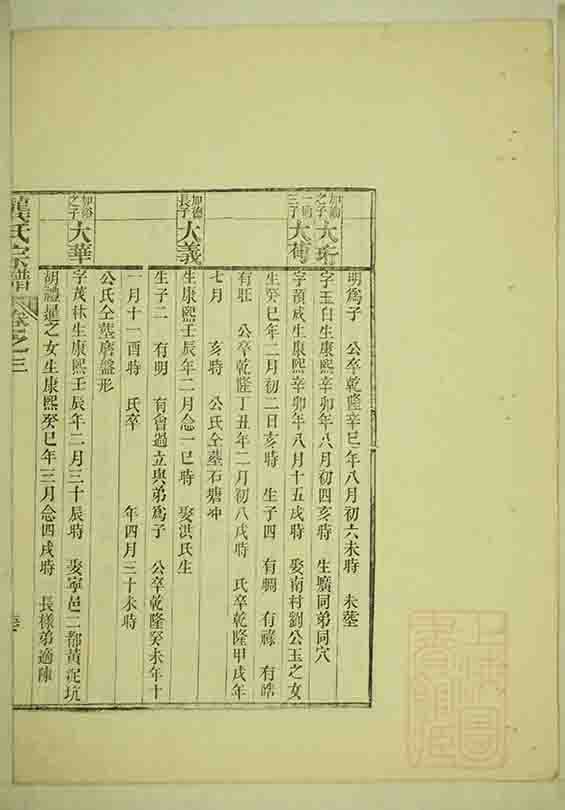 明爲子 公卒乾隆辛巳年八月初六未時 未塟
之子 大珩 字玉白生康熙辛卯年八月初四亥時 生壙同弟同穴
三子 大蔔 字蕷成生康熙辛卯年八月十五戌時 娶南村劉公玉之女
生癸巳年二月初二日亥時 生子四 有喝 有祿 有皓
有旺 公卒乾隆丁丑年二月初八戌時 氏卒乾隆甲戌年
七月 亥時 公氏仝塟石塘冲
加德長子 大義 生康熙壬辰年二月念一巳時 娶洪氏生
生子二 有明 有會過立與弟爲子 公卒乾隆癸未年十
一月十一酉時 氏卒 年四月三十未時
公氏仝塟磨盤形
之子 大華 字茂林生康熙壬辰年二月三十辰時 娶寧邑二都黃泥坑
胡禮暹之女生康熙癸巳年三月念四戌時 長樣弟適陳
氏宗譜 卷之三